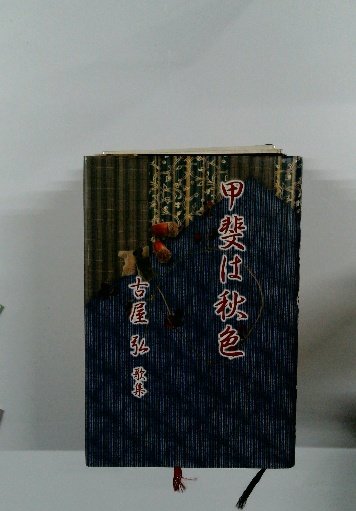 甲斐は秋色
古屋 弘 歌集